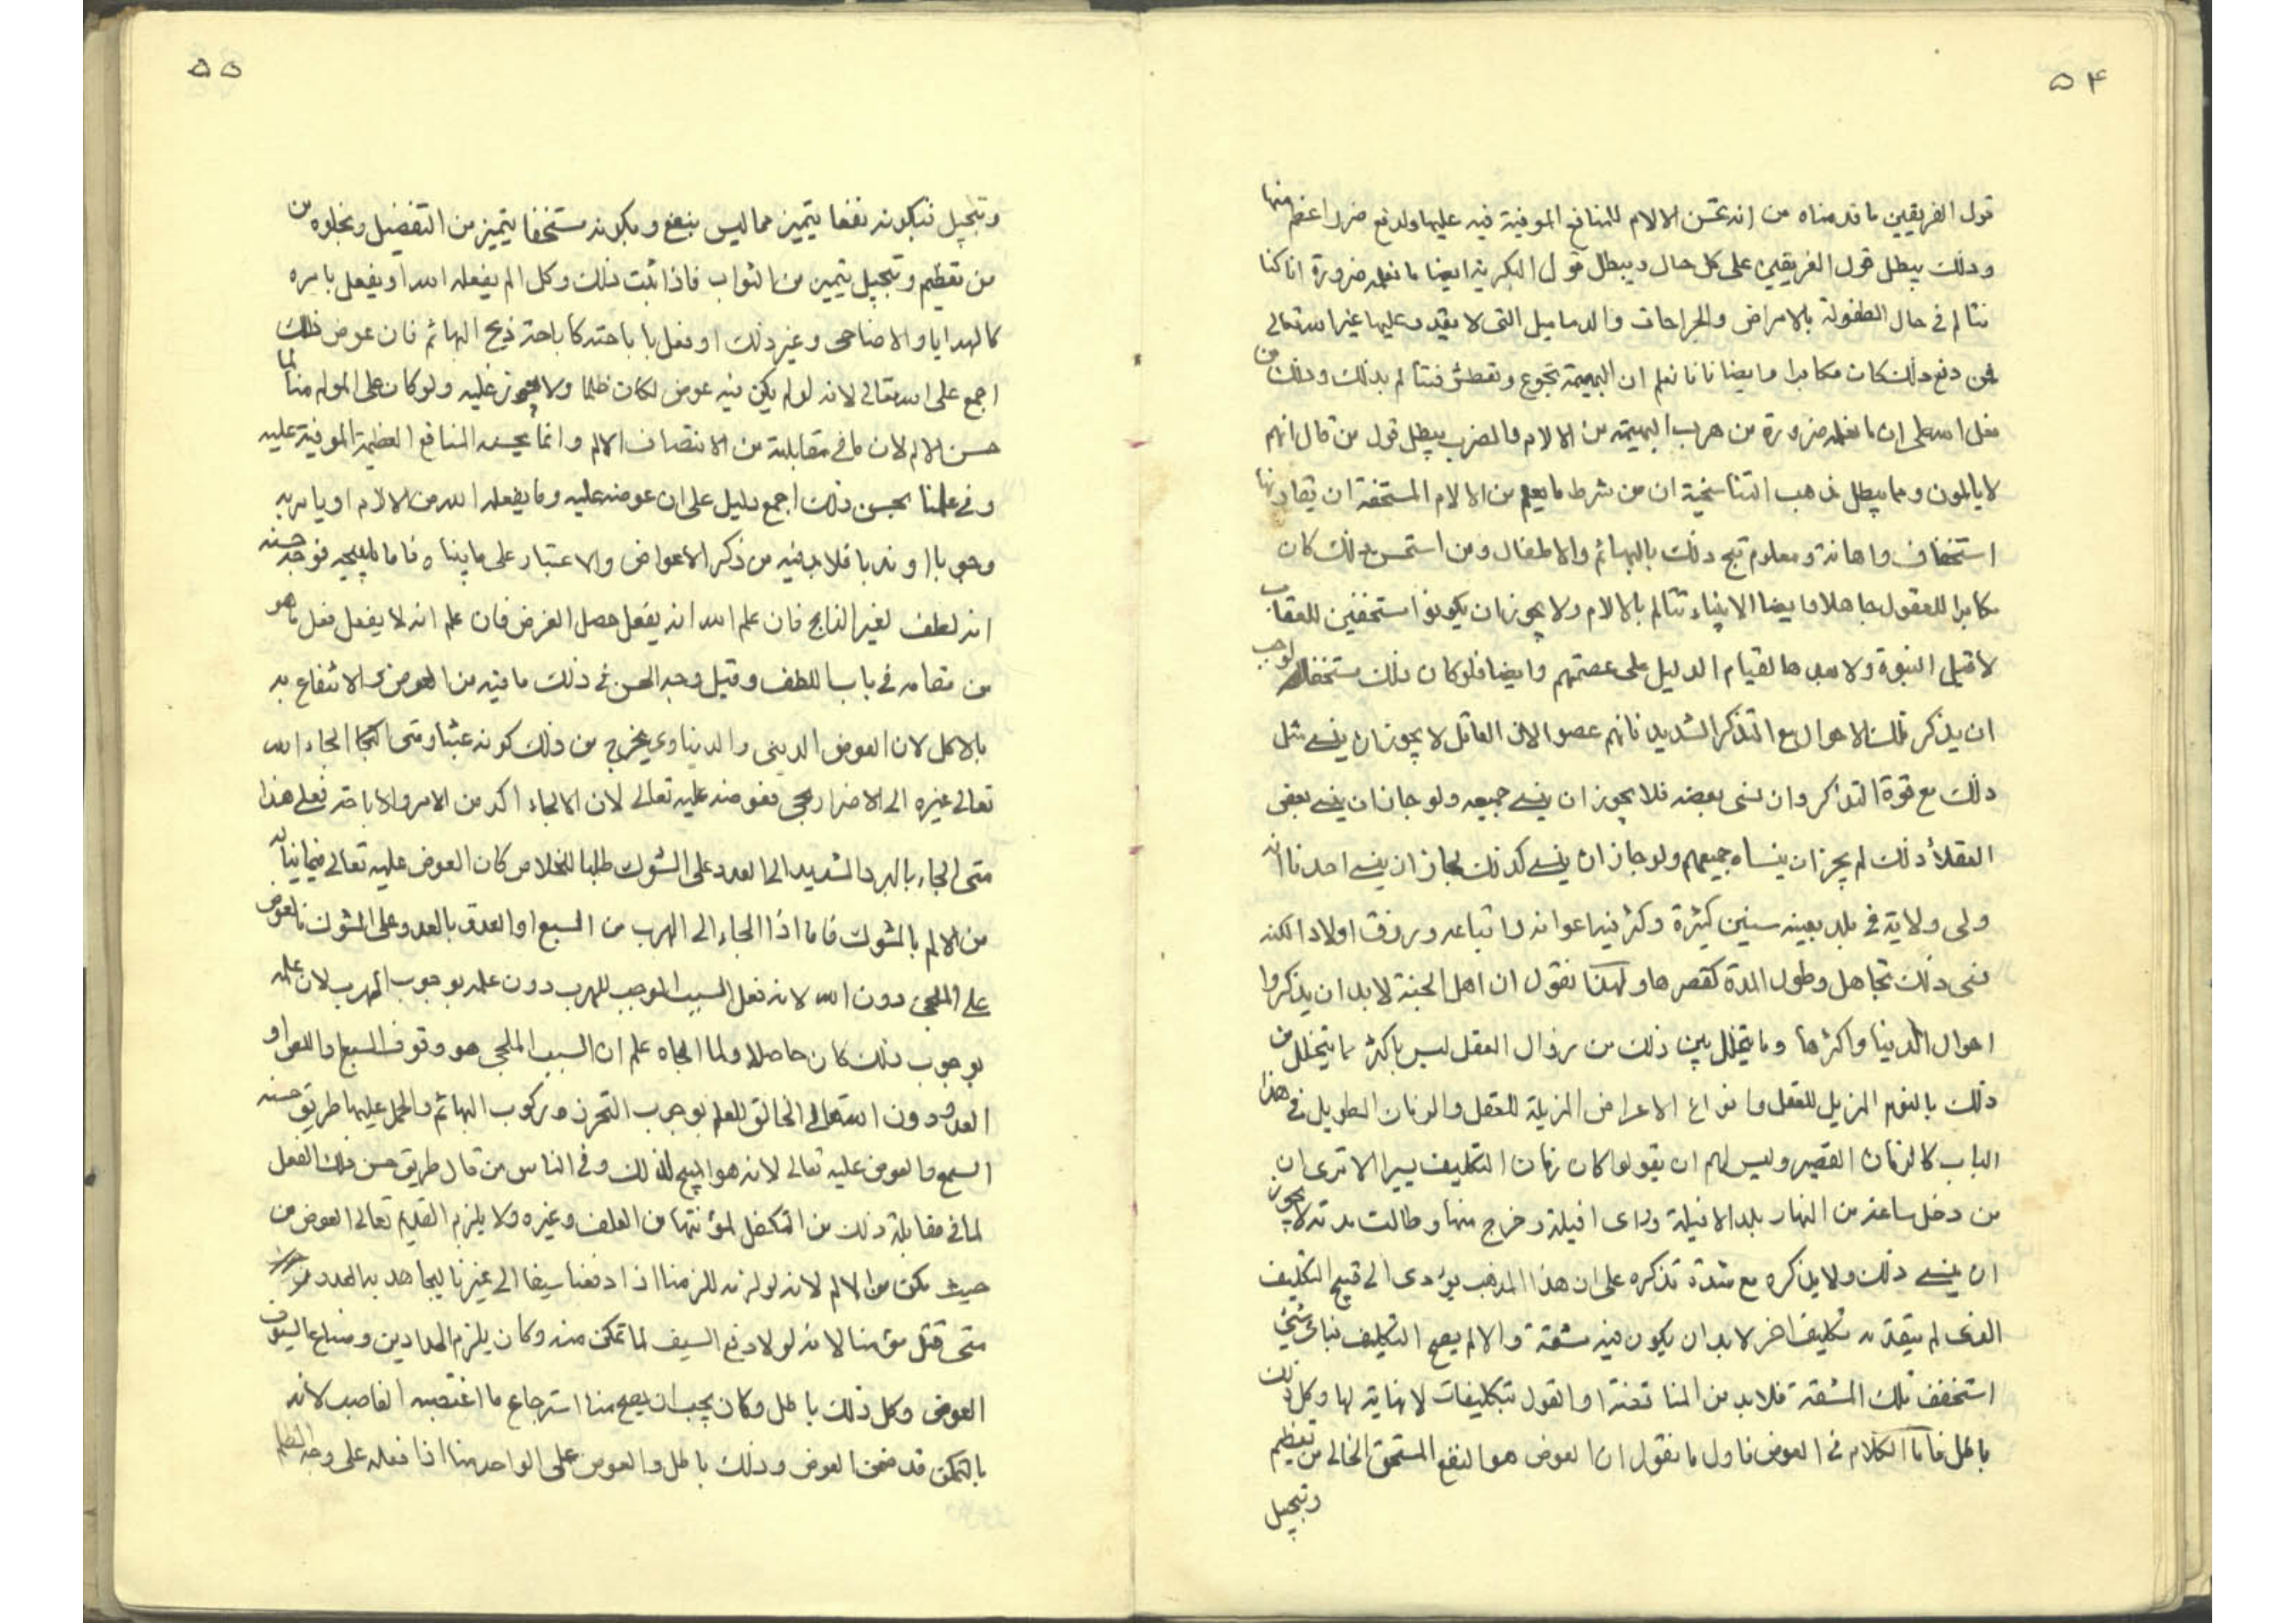 ٥۴
قول الفريقين ما قدمناه من انه يحسن الالام للمنافع الموفية فيه عليها ولدفع ضرر اعظم منها
وذلك يبطل قول الفريقين على كل حال ويبطل قول البكرية ايضا ما نعلمه ضرورة انا كنا
نتالم في حال الطفولة بالامراض والجراحات والدماميل التى لا يقدر عليها غير الله تعالى
فمن دفع ذلك كان مكابرا وايضا فانا نعلم ان البهيمة تجوع وتعطش فتتالم بذلك وذلك من
فعل الله على ان ما نعلمه ضرورة من هرب البهيمة من الالام والضرب يبطل قول من قال انهم
لا يالمون ومما يبطل مذهب التناسخية ان من شرط ما يعلم من الالام المستحقة ان يقارنها
استخفاف واهانة ومعلوم قبح ذلك بالبهائم والاطفال ومن استحسن ذلك كان
مكابرا للعقول جاهلا وايضا الانبياء تتالم بالالام ولا يجوز ان يكونوا مستحقين للعقاب
لا قبل النبوة ولا بعدها لقيام الدليل على عصمتهم وايضا فلو كان ذلك مستحقا لوجب
ان يذكر تلك الاحوال مع التذكر الشديد فانهم عصوا لان العاقل لا يجوز ان ينسى مثل
ذلك مع قوة التذاكر وان نسى بعضه فلا يجوز ان ينسى جميعه ولو جاز ان ينسى بعض
العقلاء ذلك لم يجز ان ينساه جميعهم ولو جاز ان ينسى كد ذلك لجاز ان ينسى احدنا انه
ولى ولاية في بلد بعينه سنين كثيرة وكثر فيها اعوانه واتباعه ورزق اولادا لكنه
نسى ذلك تجاهل وطول المدة كقصرها ولهذا نقول ان اهل الجنة لا بد ان يذكروا
احوال الدنيا واكثرها وما يتخلل بين ذلك من زوال العقل ليس باكثر ما يتخلل من
ذلك بالنوم المزيل للعقل وانواع الاعراض المزيلة للعقل والزمان الطويل في هذا
الباب كالزمان القصير وليس لهم ان يقولوا كان زمان التكليف يسيرا الا ترى ان
من دخل ساعة من النهار بلد الافيلة وراى افيلة وخرج منها وطالت مدته لا يجوز
ان ينسى ذلك ولا يذكره مع شدة تذكره على ان هذا المذهب يؤدى الى قبح التكليف
الذى لم يتقدمه تكليف اخر لا بد ان يكون فيه مشقة والا لم يصح التكليف فباى شيئ
استحقت تلك المشقة فلا بد من المناقضة او القول بتكليفات لا نهاية لها وكل ذلك
باطل فاما الكلام في العوض فاول ما نقول ان العوض هو النفع المستحق الخالى من تعظيم
وتبجيل
٥٥
وتبجيل فبكونه نفعا يتميز مما ليس بنفع وبكونه مستحقا يتميز من التفضيل وبخلوه من
من تعظيم وتبجيل يتميز من الثواب فاذا ثبت ذلك وكل الم يفعله الله او يفعل بامره
كالهدايا والاضاحى وغير ذلك او فعل باباحته كاباحة ذبح البهائم فان عوض ذلك
اجمع على الله تعالى لانه لو لم يكن فيه عوض لكان ظلما ولا يجوز عليه ولو كان على المولم منا لما
حسن الالم لان ما في مقابلته من الانتصاف الالم وانما يحسنه المنافع العظيمة الموفية عليه
وفي علمنا بحسن ذلك اجمع دليل على ان عوضه عليه وما يفعله الله من الالام او يامر به
وجوبا او ندبا فلا بد فيه من ذكر الاعواض والاعتبار على ما بيناه فاما ما يبيحه فوجه حسنه
انه لطف لغير الذابح فان علم الله انه يفعل حصل الغرض فان علم انه لا يفعل فعل ما هو
من مقامه في باب اللطف وقيل وجه الحسن في ذلك ما فيه من العوض والانتفاع به
بالاكل لان العوض الدينى والدنياوى يخرج من ذلك كونه عبثا ومتى الجا الجاء الله
تعالى غيره الى الاضرار بحى فعوضه عليه تعالى لان الالجاء اكد من الامر والاباحة فعلى هذا
متى الجاء بالبرد الشديد الى العدو على الشوك طلبا للخلاص كان العوض عليه تعالى فيما يناله
من الالم بالشوك فاما اذا الجاء الى الهرب من السبع او العدو بالعدو على الشوك فالعوض
على الملجئ دون الله لانه فعل السبب الموجب للهرب دون علمه بوجوب الهرب لان علمه
بوجوب ذلك كان حاصلا ولما الجاه علم ان السبب الملجى هو وقوف السبع واللص او
العدو دون الله تعالى الخالق للعلم بوجوب التحرز وركوب البهائم والحمل عليها طريق حسنه
السمع والعوض عليه تعالى لانه هو المبيح لذلك وفي الناس من قال طريق حسن ذلك العقل
لما في مقابلة ذلك من التكفل لمؤنتها من العلف وغيره ولا يلزم القديم تعالى العوض من
حيث مكن من الالم لانه لو لزمه للزمنا اذا دفعنا سيفا الى غيرنا ليجاهد به العدو
متى قتل مؤمنا لانه لولا دفع السيف لما تمكن منه وكان يلزم الحدادين وصناع السيوف
العوض وكل ذلك باطل وكان يجب ان يصح منا استرجاع ما اغتصبه الغاصب لانه
بالتمكن قد ضمن العوض وذلك باطل والعوض على الواحد منا اذا فعله على وجه الظلم